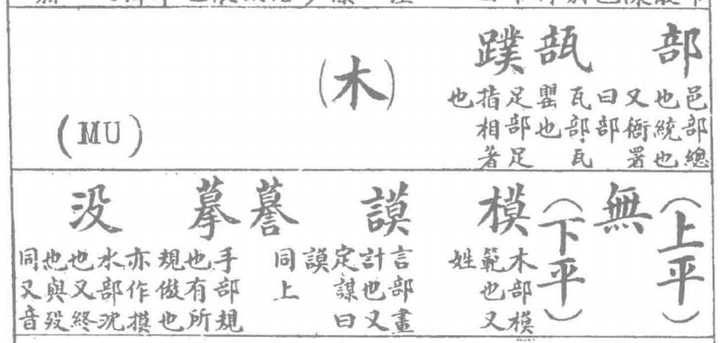 部
邑部總
也統也
又衙署
曰部
瓿
瓦部瓦
罌也
蹼
足部足
指相著
也
(木)
(MU)
(上平)
無
(下平)
模
木部模
範也又
姓
謨
言部畫
計也又
定謀曰
謨
謩
同上
摹
手部規
也有所
規倣也
亦作摸
没
水部沈
也又終
也與歿
同又音